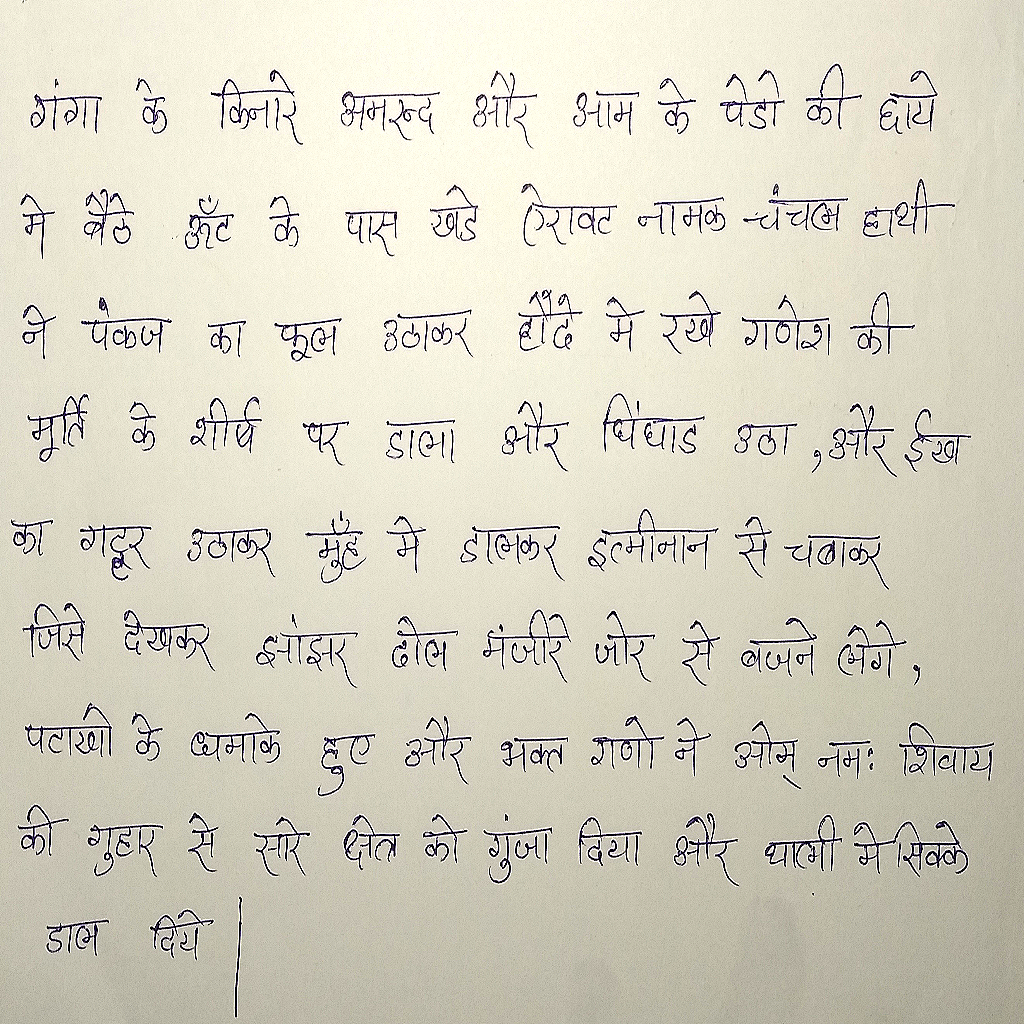 गंगा के किनारे अमरुद और आम के पेडो की छाये
मे बैठे ऊँट के पास खडे ऐरावट नामक चंचल हाथी
ने पंकज का फूल उठाकर हौदे मे रखे गणेश की
मूर्ति के शीर्ष पर डाला और चिंघाड उठा , और ईख
का गट्ठर उठाकर मुँह मे डालकर इत्मीनान से चबाकर
जिसे देखकर झांझर ढोल मंजीरे जोर से बजने लेगे ,
पटाखो के धमाके हुए और भक्त गणो ने ओम् नमः शिवाय
की गुहार से सारे क्षेत्र को गुंजा दिया और थाली मे सिक्के
डाल दिये |